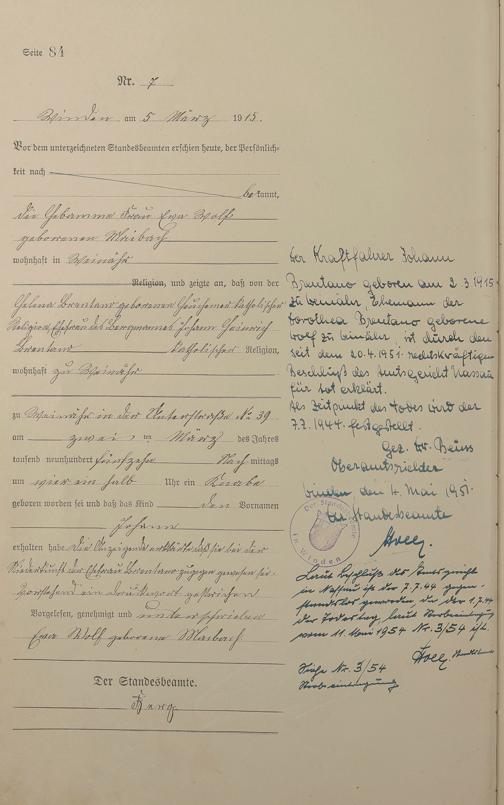 Seite 84
Nr. 7
Winden am 5 März 1915.
Vor dem unterzeichneten Standesbeamten erschien heute, der Persönlich-
keit nach
bekannt,
die Hebamme Frau Eva Wolf
geborenen Maibach
wohnhaft in Weinähr
Religion, und zeigte an, daß von der
Helena Brentano geborenen katholischer
Religion, Ehefrau des Bergmannes Johann Heinrich
Brentano katholischer Religion,
wohnhaft zu Weinähr
zu Weinähr in der Unterstraße No 39
am zwei ten März des Jahres
tausend neunhundert fünfzehn Nach mittags
um vier ein halb Uhr ein Knabe
geboren worden sei und daß das Kind den Vornamen
Johann
erhalten habe. Die Anzeigende erklärte, daß sie bei der
Niederkunft der Ehefrau Brentano zugegen gewesen sei.
Vorstehend ein Druckwort gestrichen
Vorgelesen, genehmigt und unterschrieben
Eva Wolf geborene Maibach
Der Standesbeamte.
Der Kraftfahrer Johann
Brentano geboren am 2.3.1915
zu Weinähr, Ehemann der
Dorothea Brentano geborene
Wolf zu Weinähr, ist durch den
seit dem 20.4.1951 rechtskräftigen
Beschluß des Amtsgericht Nassau
für tot erklärt.
Als Zeitpunkt des Todes wird der
7.7.1944 festgestellt.
Gez. Dr.
Winden den 4. Mai 1951.
Der Standesbeamte
in Winden
Laut Beschluß des Amtsgericht
in Nassau ist der 7.7.44 gegen-
standslos geworden, der 1.7.44
der Todestag, laut
vom 11. Mai 1954 Nr. 3/54
Siehe Nr. 3/54